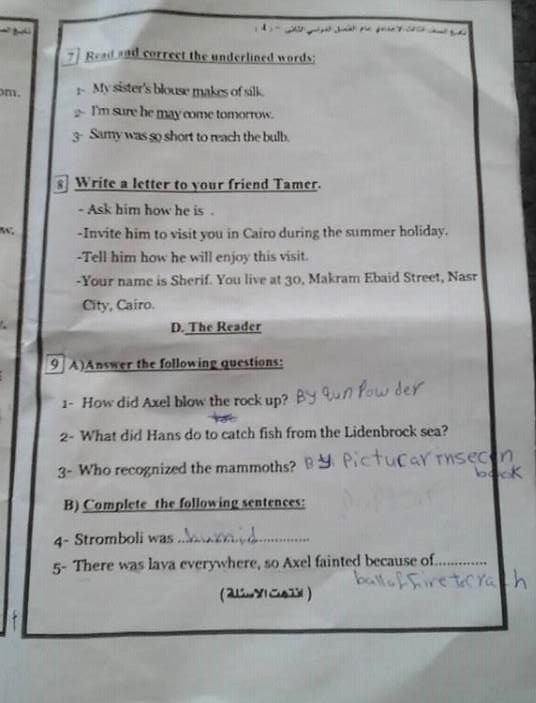 7 Read and correct the underlined words:
1- My sister's blouse makes of silk.
2- I'm sure he may come tomorrow.
3- Samy was so short to reach the bulb.
8 Write a letter to your friend Tamer.
- Ask him how he is .
-Invite him to visit you in Cairo during the summer holiday.
-Tell him how he will enjoy this visit.
-Your name is Sherif. You live at 30, Makram Ebaid Street, Nasr
City, Cairo.
D. The Reader
9 A) Answer the following questions:
1- How did Axel blow the rock up? By gun Powder
2- What did Hans do to catch fish from the Lidenbrock sea?
3- Who recognized the mammoths? By Picturar insecen
book
B) Complete the following sentences:
4- Stromboli was ..humid.............
5- There was lava everywhere, so Axel fainted because of.............
ball of fire
(انتهت الاسئلة)